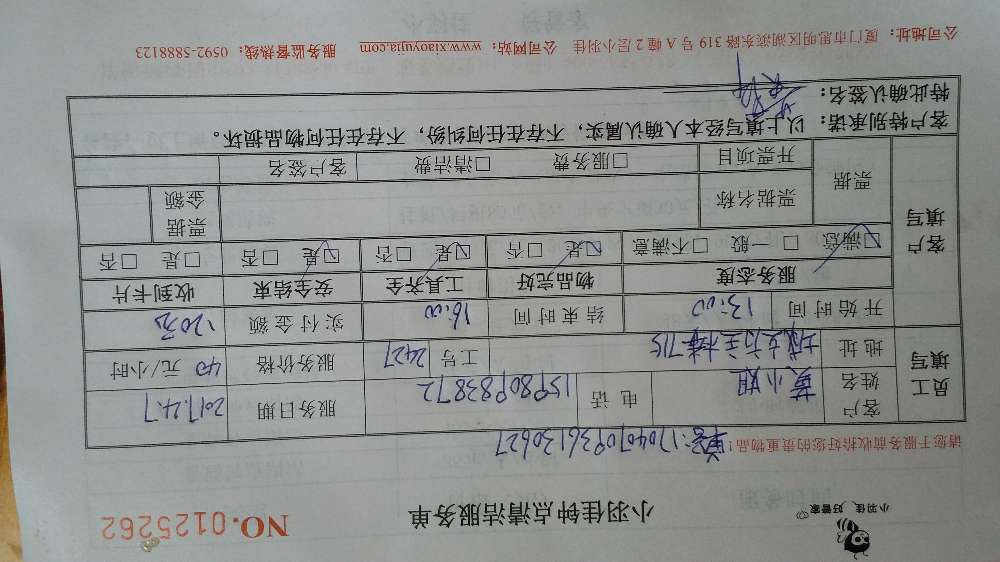 小羽佳 好管家
小羽佳钟点清洁服务单
NO.0125262
请您于服务前收拾好您的贵重物品!
单号:1704070936130627
员工填写
客户姓名 黄小姐 电话 15980983872 服务日期 2017.4.7
地址 工号 2427 服务价格 40 元/小时
开始时间 13:00 结束时间 16:00 实付金额 120元
客户填写
服务态度 物品完好 工具齐全 安全结束 收到卡片
☑满意 □一般 □不满意 ☑是 □否 ☑是 □否 ☑是 □否 □是 □否
票据 票据名称 票据金额
开票项目 □服务费 □清洁费 客户签名
客户特别承诺:以上填写经本人确认属实,不存在任何纠纷,不存在任何物品损坏。
特此确认签名:
公司地址:厦门市思明区湖滨东路 319 号 A 幢 2 层小羽佳 公司网站:www.xiaoyujia.com 服务监督热线:0592-5888123